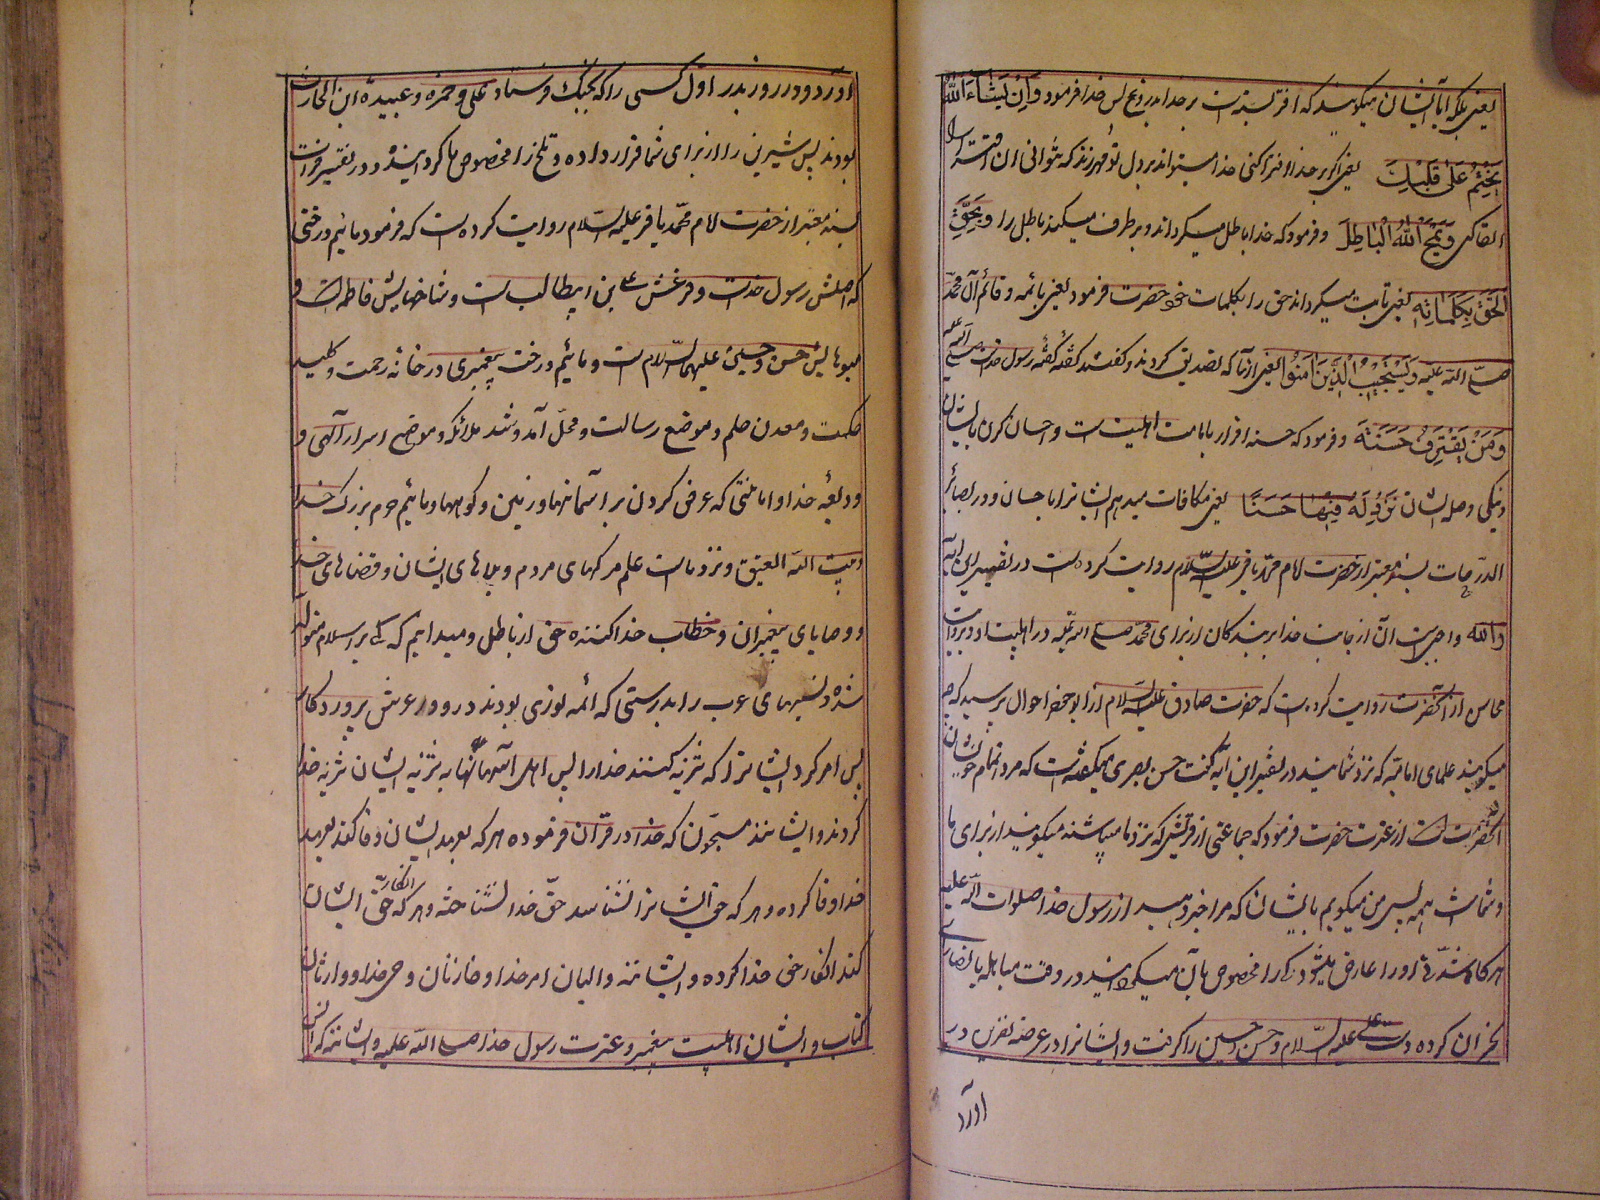 یعنی بلکه آیا ایشان میگویند که افترا بسته است بر خدا بدروغ پس خدا فرمود وَاِنْ یَشَاءِ اللهُ
یَخْتِمْ عَلیٰ قَلْبِكَ یعنی اگر بر خدا افترا کنی خدا میتواند بر دل تو مهر زند که نتوانی آن افترا را
القا کنی وَیَمْحُ اللهُ الْبَاطِلَ و فرمود که خدا باطل میگرداند و برطرف میکند باطل را وَیُحِقُّ
الْحَقَّ بِکَلِمَاتِه یعنی ثابت میگرداند حق را بکلمات خود حضرت فرمود یعنی بائمه و قائم آل محمد
صلی الله علیه وَیَسْتَجِیبُ الَّذِینَ آمَنُوا یعنی آنها که تصدیق کردند و گفتند گفته رسول خداست صلی الله علیه
وَمَنْ یَقْتَرِفْ حَسَنَةً و فرمود که حسنه اقرار بامامت اهلبیت است و احسان کردن بایشان
و نیکی و صله ایشان نَزِدْ لَهُ فِیهَا حُسْنًا یعنی مکافات میدهم ایشانرا باحسان و در بصائر
الدرجات بسند معتبر از حضرت امام محمد باقر علیه السلام روایت کرده است در تفسیر این آیه
والله واجبی است از جانب خدا بر بندگان از برای محمد صلی الله علیه در اهلبیت او و بروایت
محاسن از آنحضرت روایت کرده است که حضرت صادق علیه السلام از ابو جعفر احوال پرسید که چه
میگویند علمای امامیه که نزد شمایند در تفسیر این آیه گفت حسن بصری میگفته است که مراد تمام خویشان
آنحضرت است از عترت حضرت فرمود که جماعتی از قریش که نزد ما میباشند میگویند از برای ما
و شماست همه پس من میگویم بایشان که مرا خبر دهید از رسول خدا صلوات الله علیه
هرگاه شدتی او را عارض میشود که را مخصوص بآن میگردانید در وقت مباهله با نصارای
نجران کرده دست علی علیه السلام و حسن و حسین را گرفت و ایشانرا در عرضه نفرین در
آورد
آورد و در روز بدر اول کسی را که بجنگ فرستاد علی و حمزه و عبیده ابن الحارث
بودند پس شیرین را از برای شما قرار داده و تلخ را مخصوص ما گردانیده و در تفسیر فرات
بسند معتبر از حضرت امام محمد باقر علیه السلام روایت کرده است که فرمود مائیم درختی
که اصلش رسول خداست و فرعش علی بن ابیطالب است و شاخهایش فاطمه است و
میوهایش حسن و حسین علیهما السلام است و مائیم درخت پیغمبری در خانه رحمت و کلید
حکمت و معدن علم و موضع رسالت و محل آمد و شد ملائکه و موضع اسرار آلهی و
ودیعه خدا و امانتی که عرض کردن بر آسمانها و زمین و کوهها و مائیم حرم بزرگ خدا
و بیت الله العتیق و نزد ماست علم مرگهای مردم و بلاهای ایشان و قضاهای خدا
و وصایای پیغمبران و خطاب جدا کننده حق از باطل و میدانیم که کی بر اسلام متولد
شده و نسبهای عرب را بدرستی که ائمه نوری بودند در دور عرش پروردگار
پس امر کرد ایشانرا که تنزیه کنند خدا را پس اهل آسمانها به تنزیه ایشان تنزیه خدا
کردند و ایشانند مسبحون که خدا در قرآن فرموده هر که بعهد ایشان وفا کند بعهد
خدا وفا کرده و هر که حق ایشانرا شناسد حق خدا شناخته و هر که انکار حق ایشان
کند انکار حق خدا کرده و ایشانند والیان امر خدا و خازنان وحی خدا و وارثان
کتاب و ایشان اهلبیت پیغمبر و عترت رسول خدا صلی الله علیه و ایشانند که